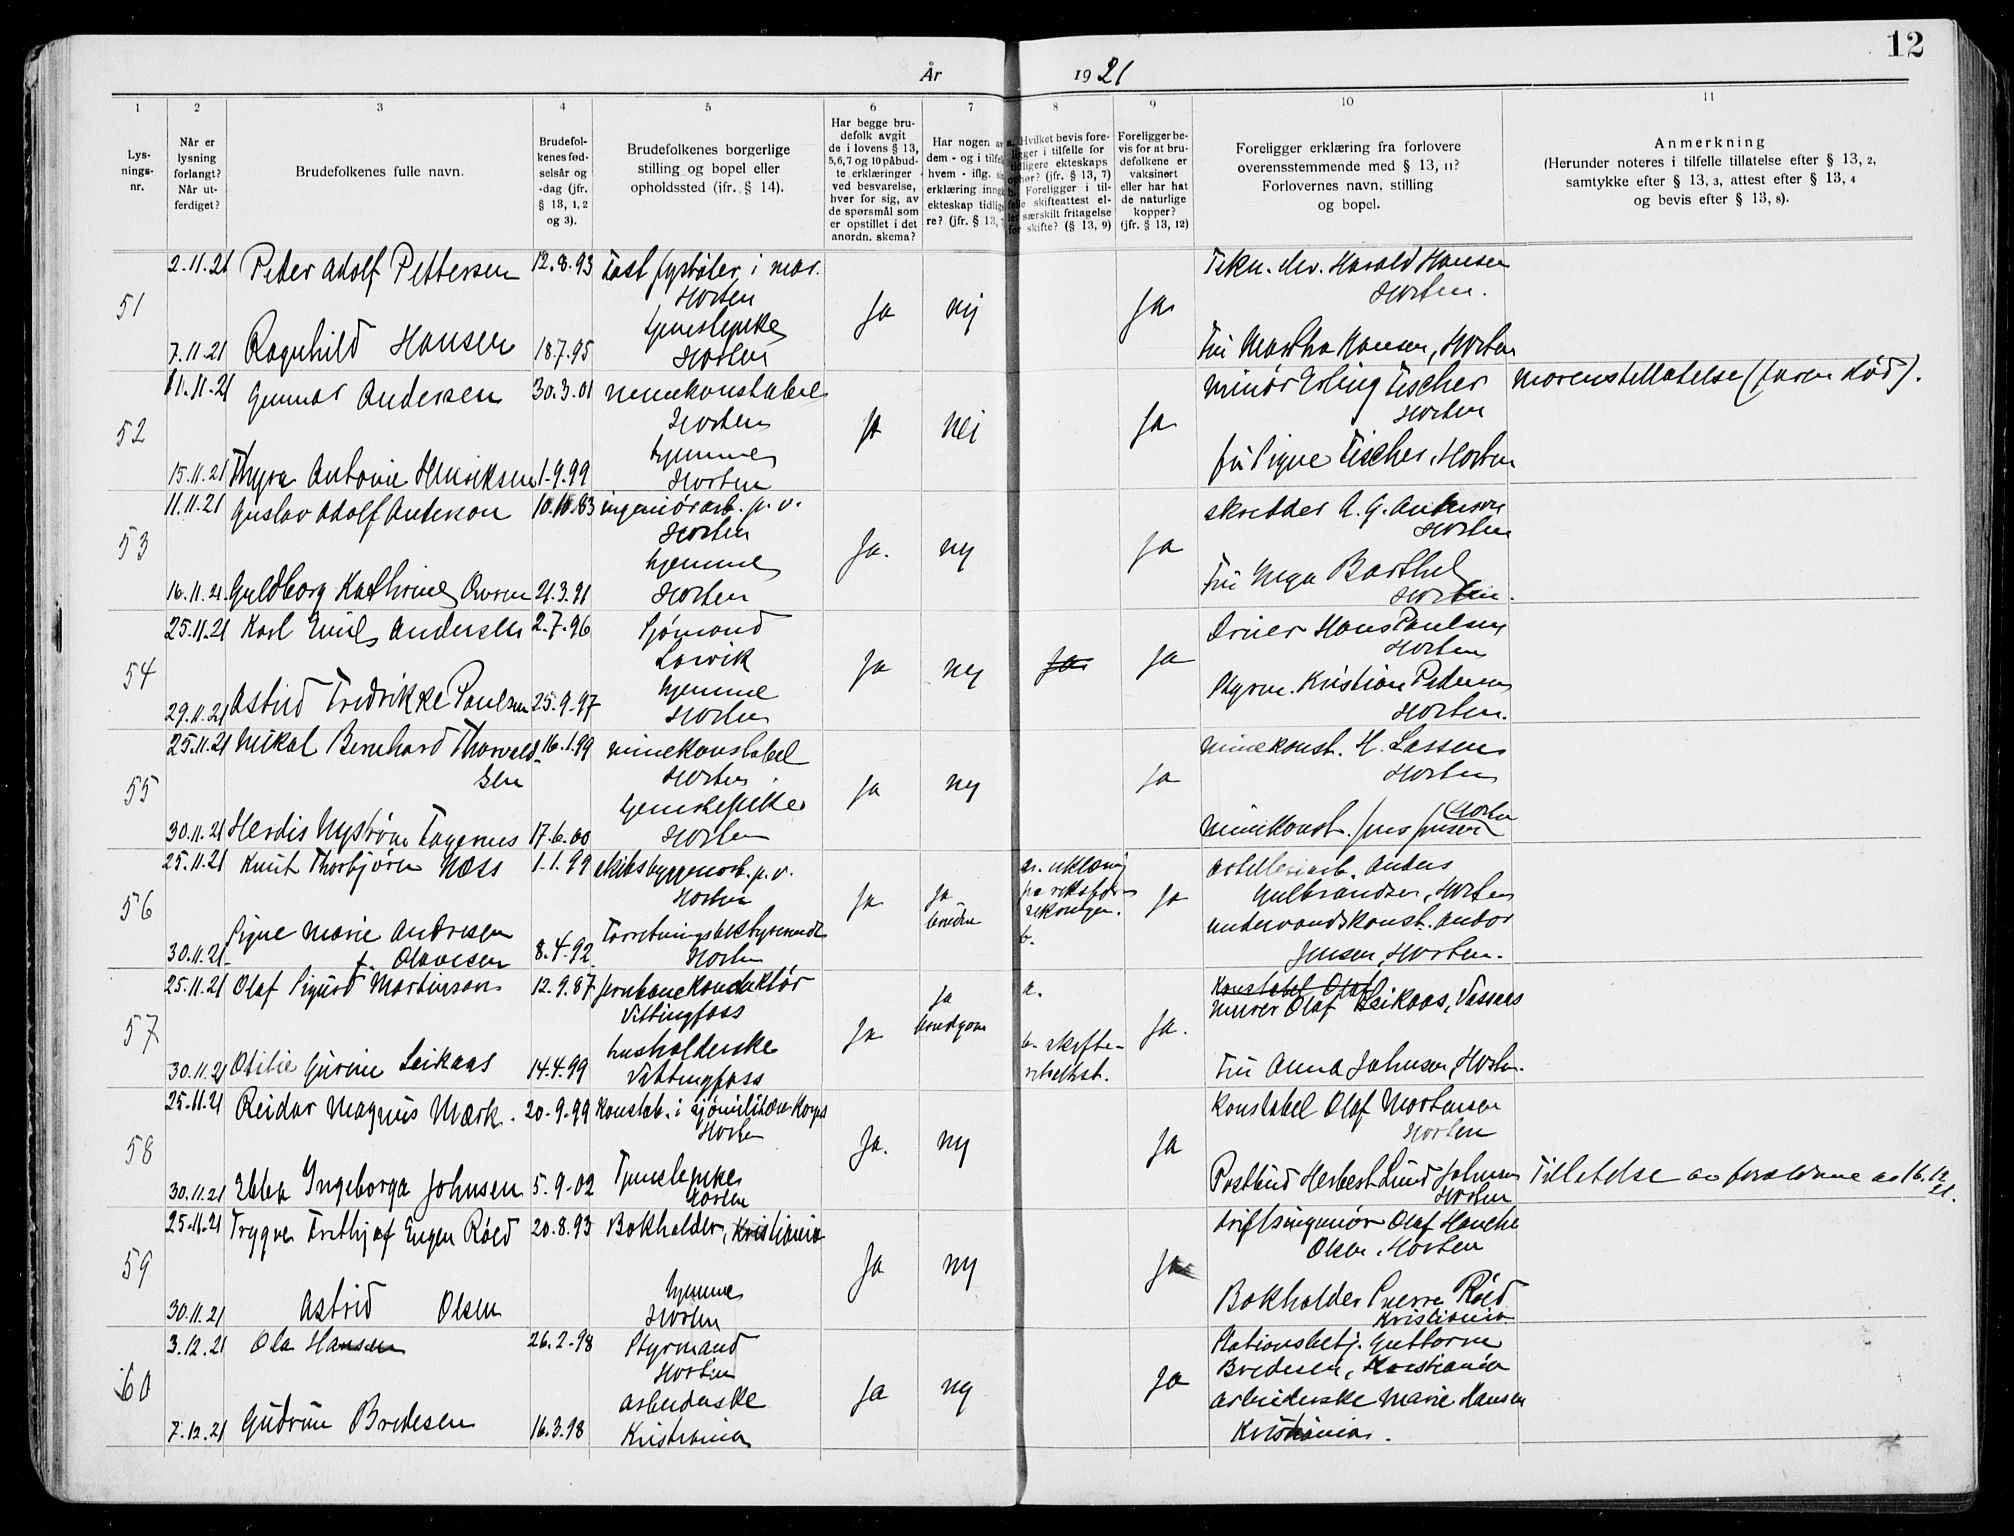 12
År 1921
1 2 3 4 5 6 7 8 9 10 11
Lys-
nings-
nr.
Når er
lysning
forlangt?
Når ut-
ferdiget?
Brudefolkenes fulle navn.
Brudefol-
kenes fød-
selsår og
-dag (jfr.
§ 13, 1, 2
og 3).
Brudefolkenes borgerlige
stilling og bopel eller
opholdssted (ifr. § 14).
Har begge bru-
defolk avgit
de i lovens § 13,
5,6,7 og 10 påbud-
te erklæringer
ved besvarelse,
hver for sig, av
de spørsmål som
er opstillet i det
anordn. skema?
Har nogen av
dem - og i tilfel
hvem - iflg.
erklæring inng
ekteskap tidlig
re? (jfr. § 13,
a. Hvilket bevis fore-
ligger i tilfelle for
tidligere ekteskaps
ophør? (jfr. § 13, 7)
b. Foreligger i til-
felle skifteattest el-
ler særskilt fritagelse
for skifte? (§ 13, 9)
Foreligger be-
vis for at bru-
defolkene er
vaksinørt
eller har hat
de naturlige
kopper?
(jfr. § 13, 12)
Foreligger erklæring fra forlovere
overensstemmende med § 13, 11?
Forlovernes navn, stilling
og bopel.
Anmerkning
(Herunder noteres i tilfelle tillatelse efter § 13, 2,
samtykke efter § 13, 3, attest efter § 13, 4
og bevis efter § 13, 8).
51
2.11.21 Peder Adolf Pettersen 12.8.93 fast fyrbøter i mar.
Horten
Ja nej Ja
Harald Hansen
Horten.
7.11.21 Ragnhild Hansen 18.7.95 tjenestepike
Horten
Fru Martha Hansen, Horten
52
11.11.21 Gunnar Andersen 30.3.01 minekonstabel
Horten
Ja nei Ja
Minør Erling Fischer
Horten
Morens tillatelse (faren død).
15.11.21 Thyra Antonie Henriksen 1.9.99 hjemme
Horten
fru Signe Fischer, Horten
53
11.11.21 Gustav Adolf Anderson 10.10.83 ingeniørarb. p.v.
Horten
Ja. nej Ja
skredder A. G. Anderson
Horten
16.11.21. Guldborg Kathrine 21.3.91 hjemme
Horten
Fru Barthel
Horten.
54
25.11.21 Karl Emil Andersen 2.7.96 Sjømand
Larvik
Ja nej Ja Ja
Hans Paulsen
Horten
29.11.21 Astrid Fredrikke Paulsen 25.9.97 hjemme
Horten
Styrm. Kristian Pedersen
Horten.
55
25.11.21 Mikal Bernhard Thorvald-
sen
16.1.99 minekonstabel
Horten
Ja nej Ja
minekonst. H. Lassen
Horten
30.11.21 Herdis Nystrøm 17.6.00 tjenestepike
Horten
minekonst. Jens Jensen Horten
56
25.11.21 Knut Thorbjørn Næss 1.1.99 skibsbyggerarb. p.v.
Horten
Ja Ja
bruden
a.
b.
Ja
artilleriarb. Anders
Gulbrandsen, Horten
30.11.21 Signe Marie Andresen
f. Olavesen
8.4.92 Forretningsbestyrerinde
Horten
undervandskonst. Andor
Jensen, Horten.
57
25.11.21 Olaf Sigurd Martinson 12.9.87 jernbanekonduktør
Vittingfoss
Ja Ja
brudgom
a.
b. skifte-
attest.
Ja.
Konstabel Olaf
Murer Olaf Leikaas, Vassaas
30.11.21 Otilie Gurine Leikaas 14.4.99 husholderske
Vittingfoss
Fru Anna Johnsen, Horten.
58
25.11.21 Reidar Magnus Mærk. 20.9.99 Konstab. i sjømilitære Korps
Horten
Ja. nej Ja
Konstabel Olaf Mortensen
Horten
30.11.21 Ebba Ingeborga Johnsen 5.9.02 Tjenestepike
Horten
Postbud Herbert Lund Johnsen
Horten
Tillatelse av forældrene av 16.12.21.
59
25.11.21 Trygve Frithjof Eugen Røed 20.8.93 Bokholder, Kristiania
Ja nej Ja
driftsingeniør Olaf Hauche
Olsen, Horten
30.11.21 Astrid Olsen hjemme
Horten
Bokholder Sverre Røed
Kristiania
60
3.12.21 Ola Hansen 26.2.98 Styrmand
Horten
Ja nej Ja
Stationsbetj. Guttorm
Bredesen, Kristiania
7.12.21 Gudrun Bredesen 16.3.98 arbeiderske
Kristiania
arbeiderske Marie Hansen
Kristiania.